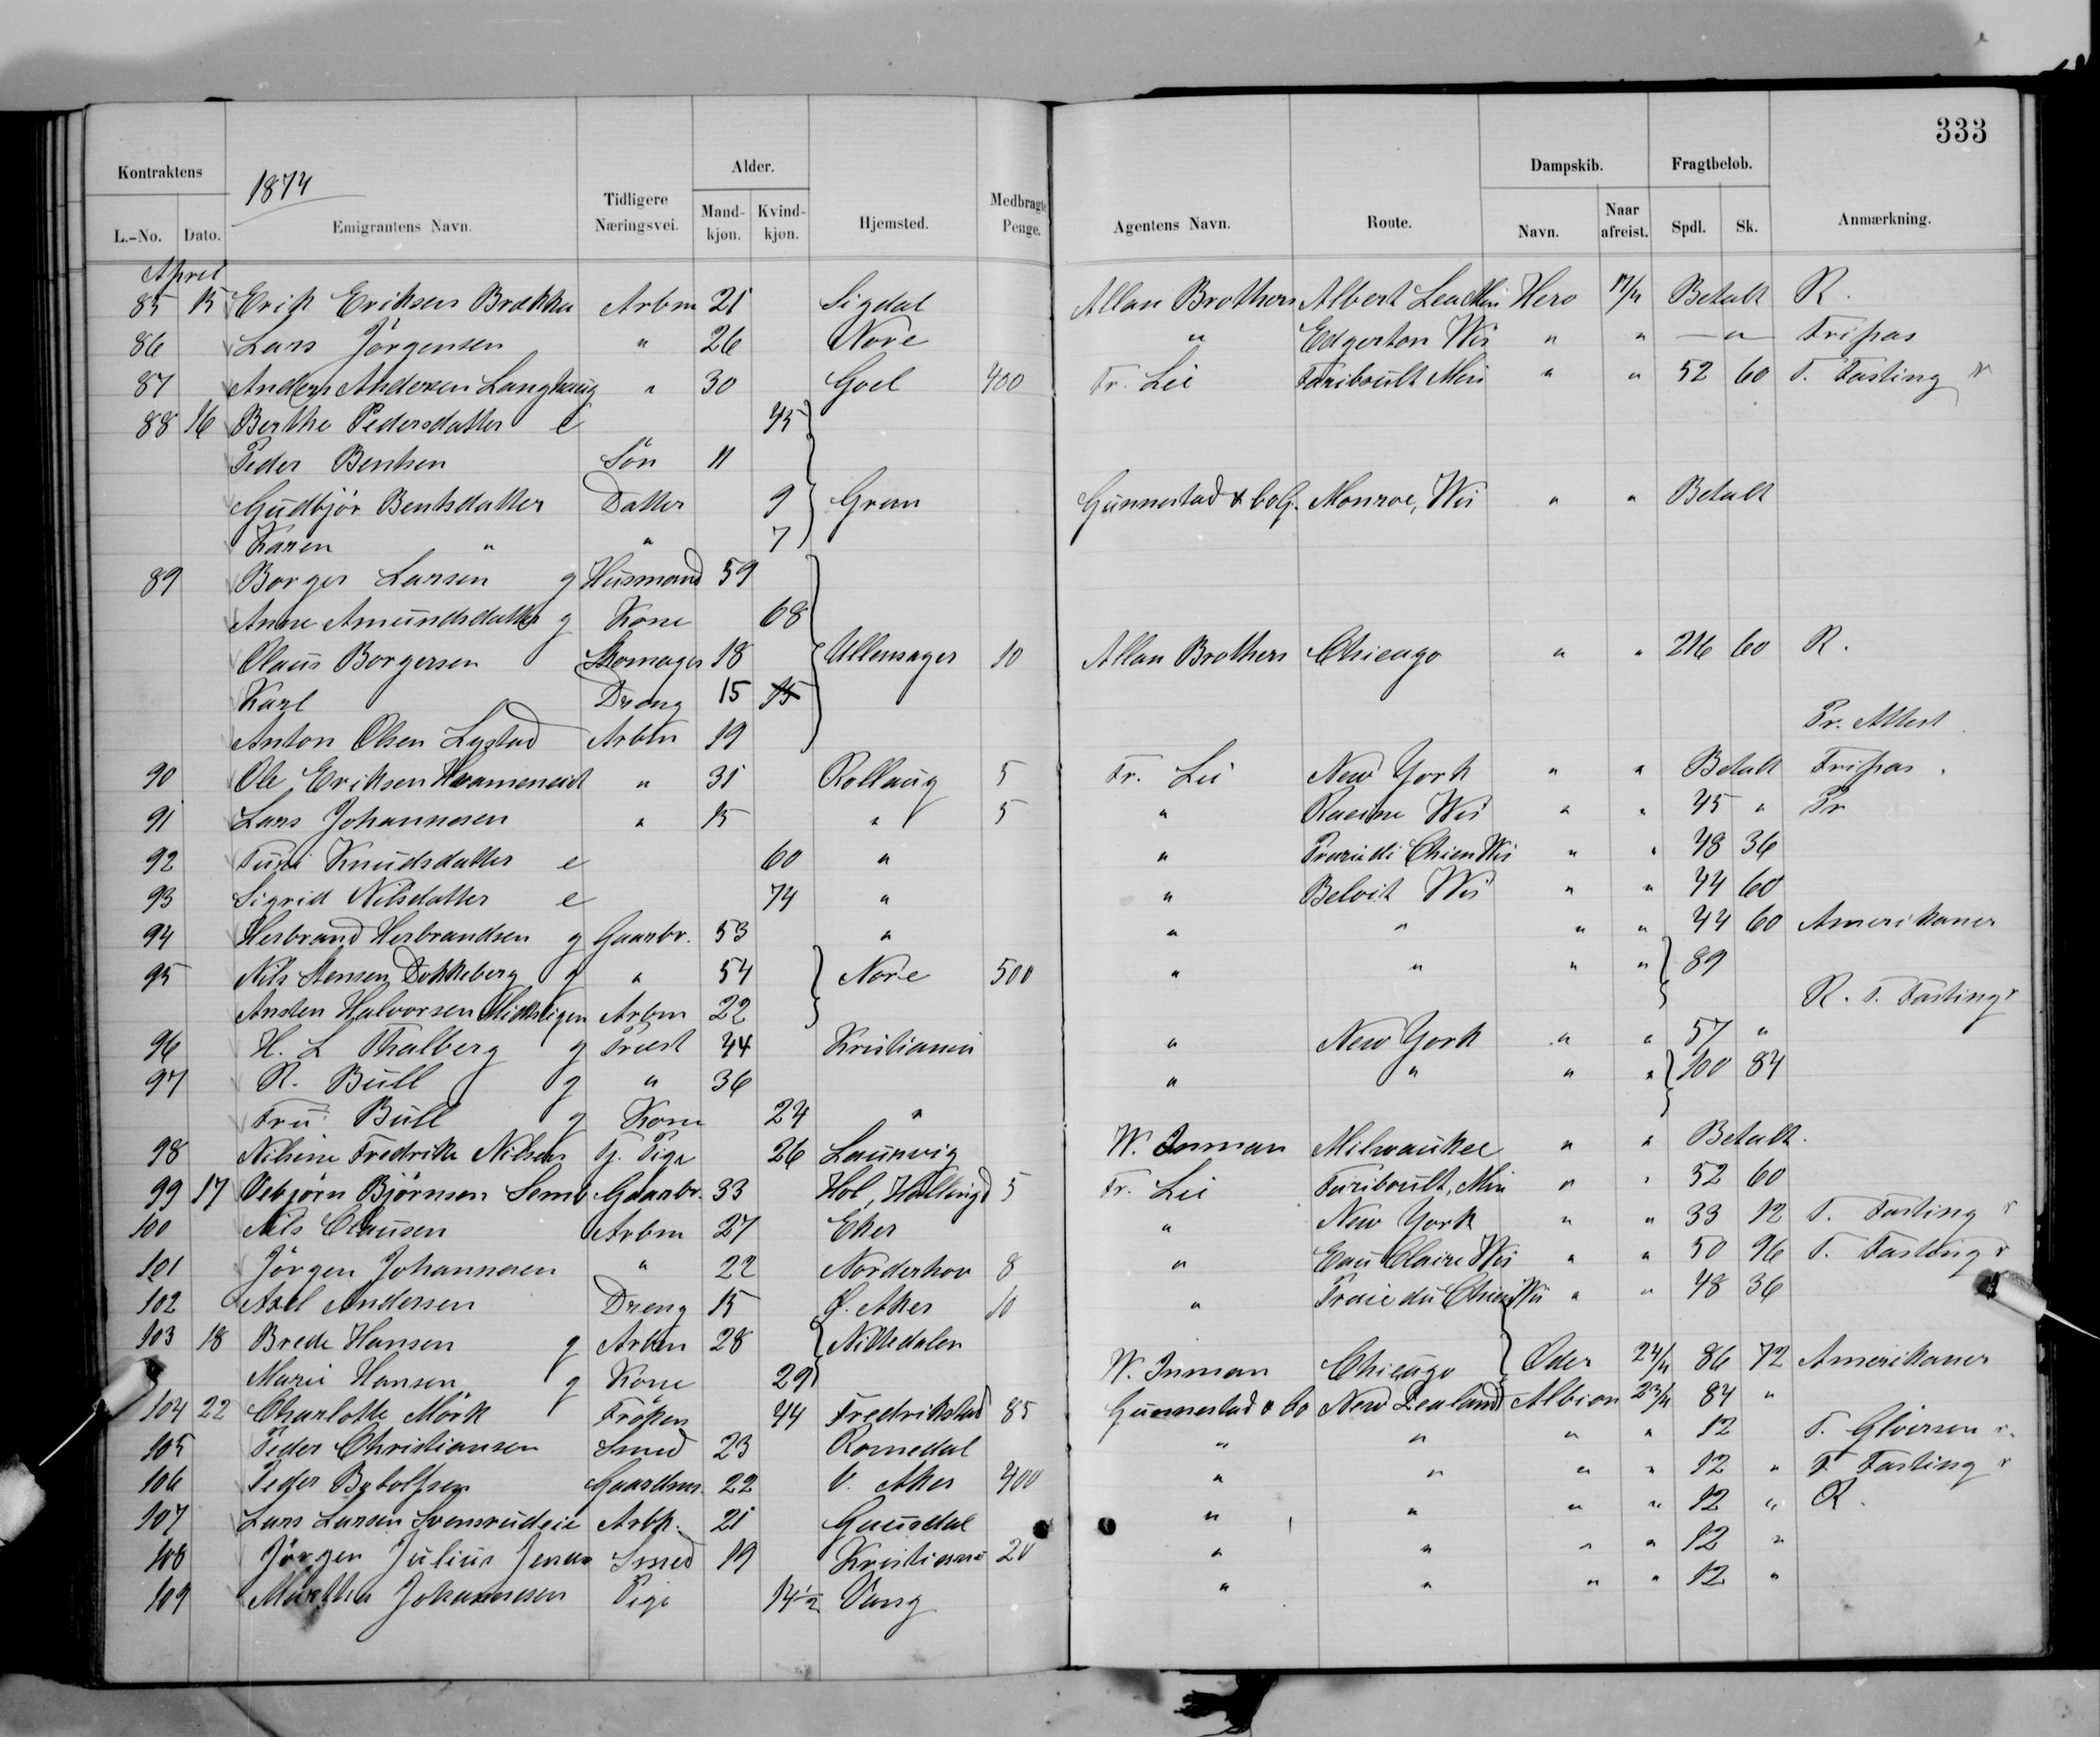 333
Kontraktens 1874 Emigrantens Navn. Tidligere Næringsvei. Alder. Hjemsted. Medbragte Penge. Agentens Navn. Route. Dampskib. Fragtbeløb. Anmærkning.
L.-No. Dato. Mand-kjøn. Kvind-kjøn. Navn. Naar afreist. Spdl. Sk.
April
85 15 Erik Eriksen Brækka Arbm 21 Sigdal Allan Brothers Albert Lea Min Hero 17/4 Betalt R.
86 Lars Jörgensen " 26 Nore " Edgerton Wis " " — " — Fripas
87 Anders Andersen Langhaug " 30 Goel 400 Fr. Lie Fariboult Min " " 52 60 T. Fasting r
88 16 Berthe Pedersdatter e 45
Peder Bentsen Sön 11
Gudbjör Bentsdatter Datter 9 Gran Gunnestad & Co Monroe, Wis " " Betalt
Karen " " 7
89 Borger Larsen g Husmand 59
Anne Amundsdatter g Kone 68
Olaus Borgersen Skomager 18 Ullensager 10 Allan Brothers Chicago " " 216 60 R.
Karl Dreng 15 15
Anton Olsen Lystad Arbm 19 Pr. Attest
90 Ole Eriksen " 31 Rollaug 5 Fr. Lie New York " " Betalt Fripas.
91 Lars Johannesen " 15 " 5 " Racine Wis " " 45 " Pr
92 Turi Knudsdatter e 60 " " Prarie di Chien Wis " " 48 36
93 Sigrid Nilsdatter e 74 " " Beloit Wis " " 44 60
94 Herbrand Herbrandsen g Gaarbr. 53 " " " " " 44 60 Amerikaner
95 Nils Stensen Dokkeberg g " 54 Nore 500 " " " " 89
Ansten Halvorsen Arbm 22 R. T. Fasting r
96 H. L Thalberg g Præst 44 Kristiania " New York " " 57 "
97 R. Bull g " 36 " " " " 100 84
Fru Bull g Kone 24 "
98 Nilsine Fredrikke Nilsen Tj. Pige 26 Laurvig W. Inman Milwaukee " " Betalt.
99 17 Vebjörn Björnsen Gaarbr. 33 Hol, Hallingd 5 Fr. Lie Fariboult, Min " " 52 60
100 Nils Clausen Arbm 27 Eker " New York " " 33 12 T. Fasting r
101 Jörgen Johannesen " 22 Norderhov 8 " Eau Claire Wis " " 50 96 T. Fasting r
102 Axel Andersen Dreng 15 Ø. Aker 10 " Praie du Chien Wis " " 48 36
103 18 Brede Hansen g Arbm 28 Nittedalen
Marie Hansen g Kone 29 W. Inman Chicago Oder 24/4 86 72 Amerikaner
104 22 Charlotte Mörk Fröken 44 Fredrikstad 85 Gunnestad & Co New Zealand Albion 23/4 84 "
105 Peder Christiansen Smed 23 Romedal " " " " 12 T. Gloersen r.
106 Peder Gaardm. 22 V. Aker 400 " " " " 12 " T. Fasting r
107 Lars Larsen Svensrudeie Arb. 21 Gausdal " " " " 12 " R.
108 Jörgen Julius Jensen Smed 19 Kristiania 20 " " " " 12 "
109 Marthe Johannesen Pige 14 1/2 Vang " " " " 12 "